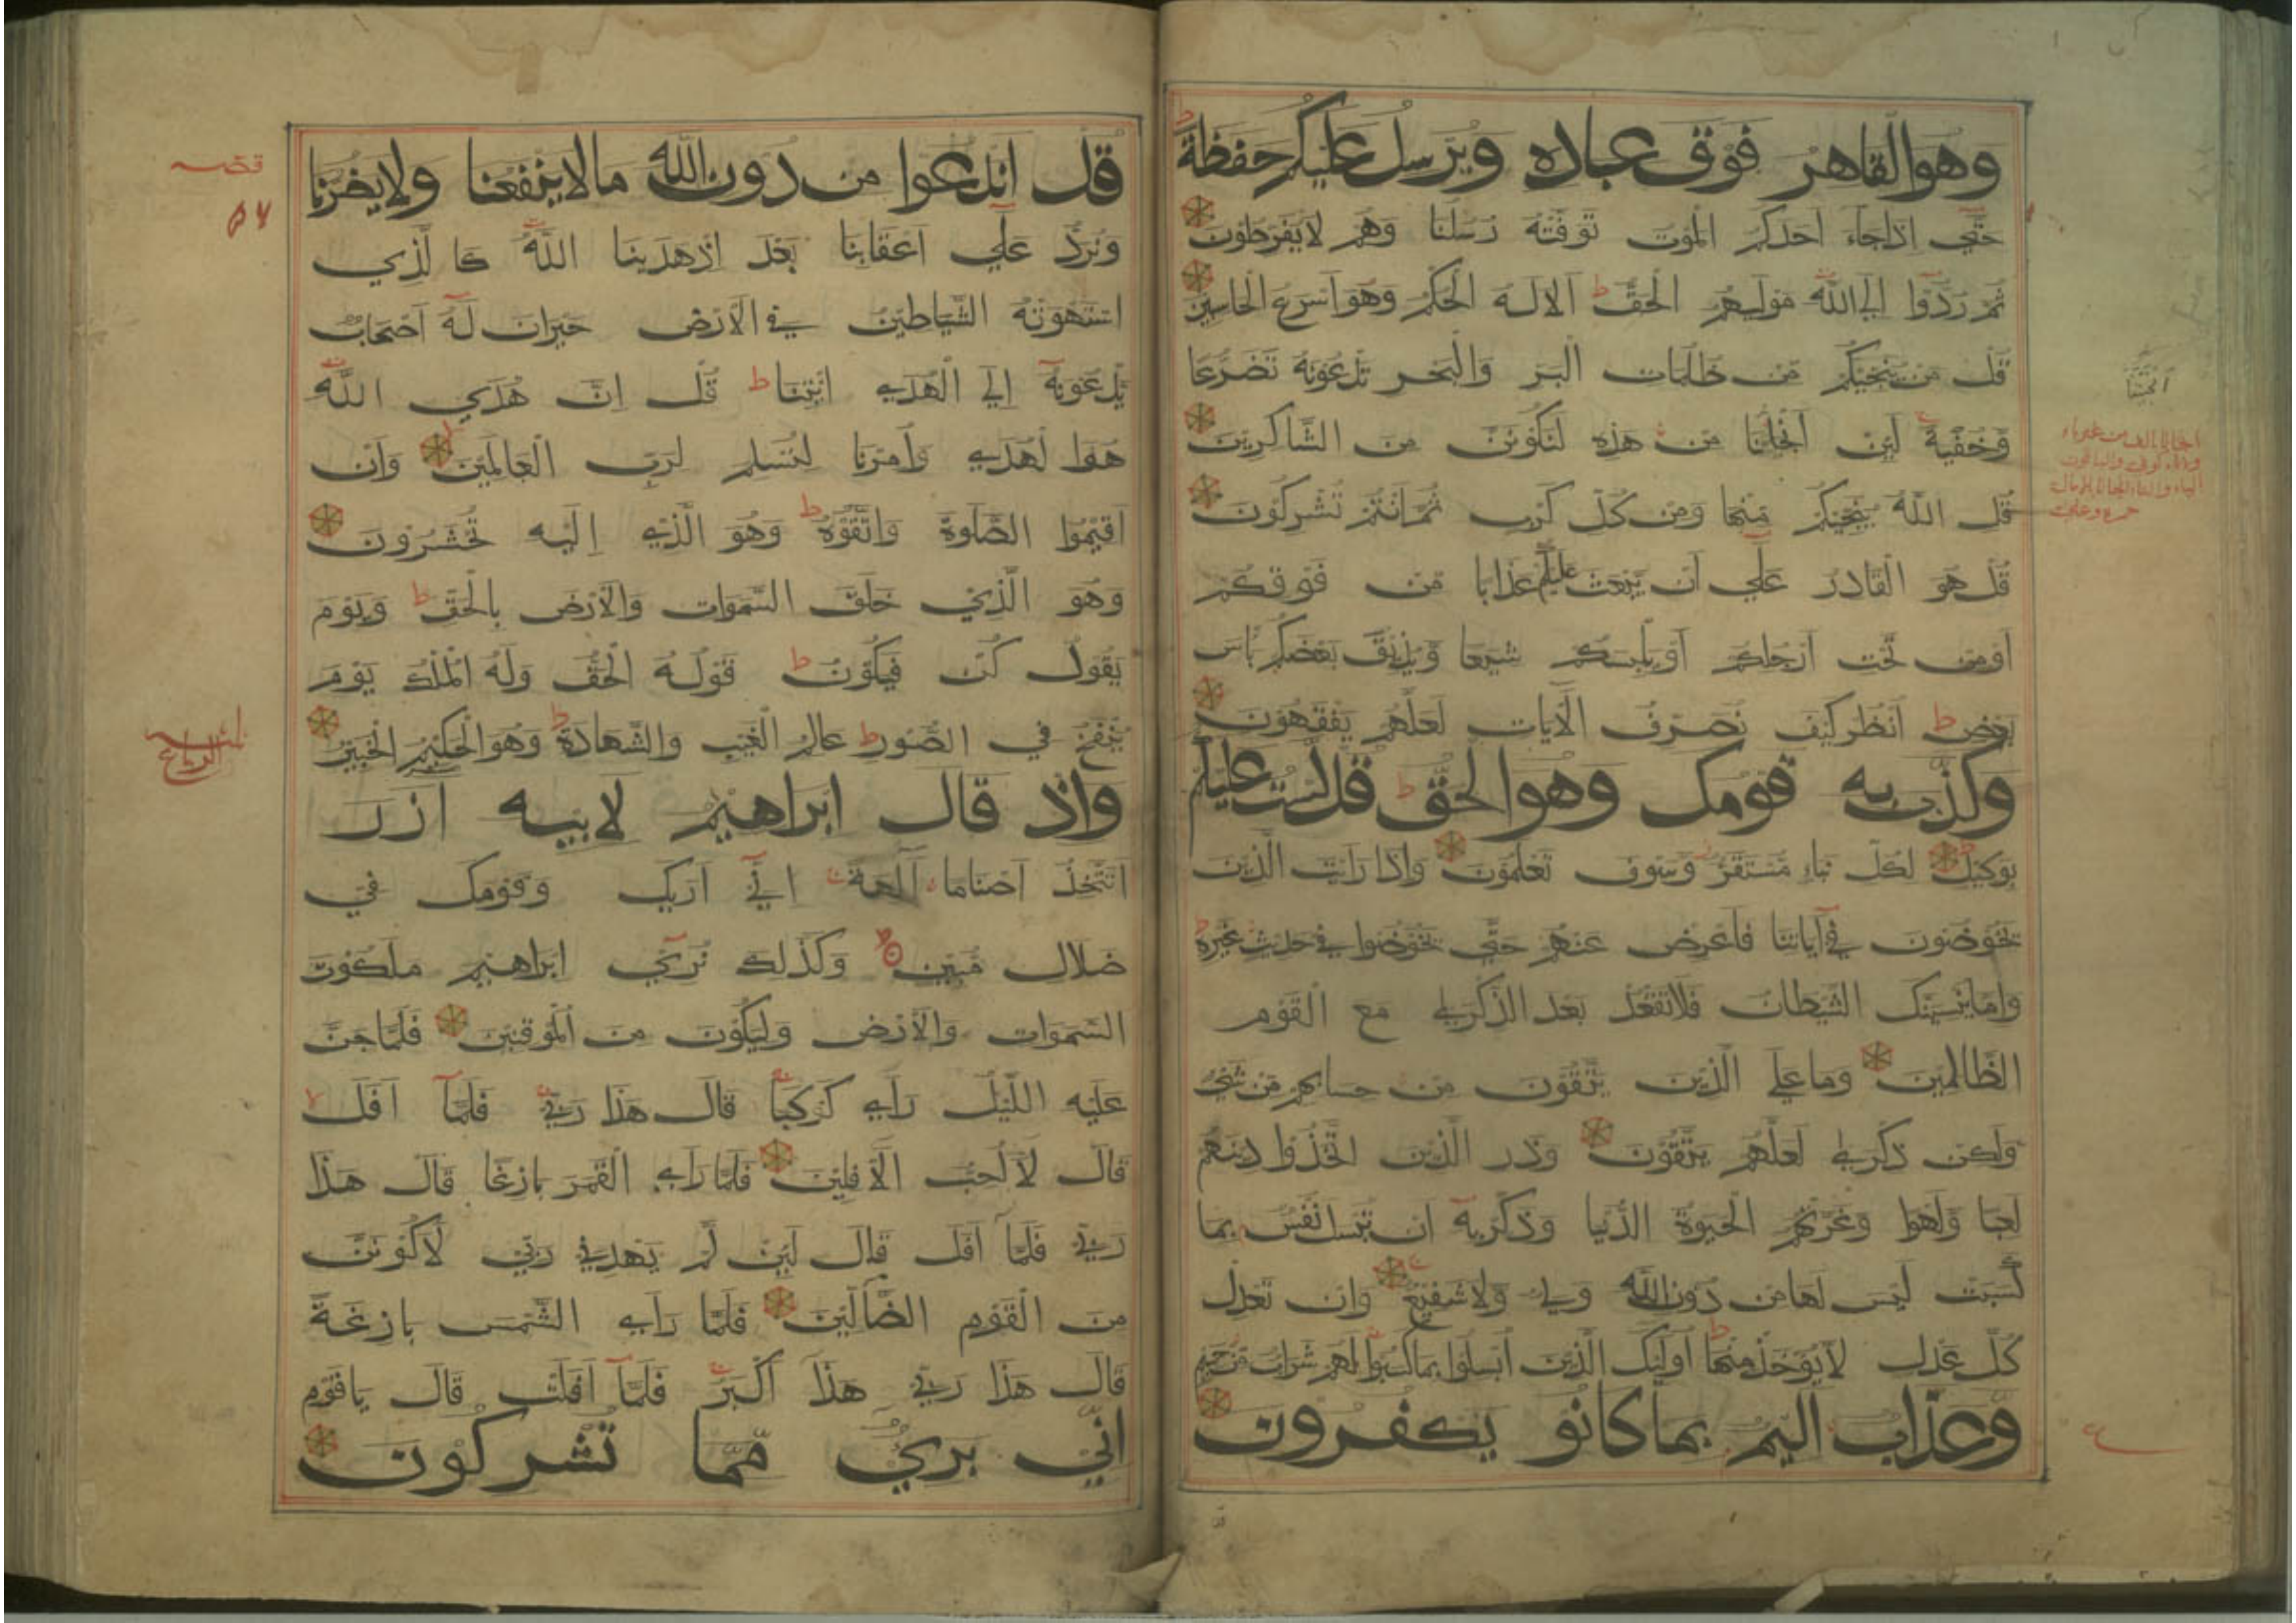 وهو القاهر فوق عباده ويرسل عليكم حفظة ط
حتي اذا جاء احدكم الموت توفته رسلنا وهم لا يفرطون
ثم ردوا الي الله موليهم الحق ط الا له الحكم وهو اسرع الحاسبين
قل من ينجيكم من ظلمات البر والبحر تدعونه تضرعا
وخفية لئن انجانا من هذه لنكونن من الشاكرين
قل الله ينجيكم منها ومن كل كرب ثم انتم تشركون
قل هو القادر علي ان يبعث عليكم عذابا من فوقكم
او من تحت ارجلكم او يلبسكم شيعا ويذيق بعضكم باس
بعض ط انظر كيف نصرف الايات لعلهم يفقهون
وكذب به قومك وهو الحق ط قل لست عليكم
بوكيل لكل نباء مستقر وسوف تعلمون واذا رايت الذين
يخوضون في اياتنا فاعرض عنهم حتي يخوضوا في حديث غيره ط
واما ينسينك الشيطان فلا تقعد بعد الذكري مع القوم
الظالمين وما علي الذين يتقون من حسابهم من شيء
ولكن ذكري لعلهم يتقون وذر الذين اتخذوا دينهم
لعبا ولهوا وغرتهم الحيوة الدنيا وذكر به ان تبسل نفس بما
كسبت ليس لها من دون الله ولي ولا شفيع وان تعدل
كل عدل لا يؤخذ منها ط اولئك الذين ابسلوا بما كسبوا لهم شراب من حميم
وعذاب اليم بما كانو يكفرون
انجيتنا
قل اندعوا من دون الله ما لا ينفعنا ولا يضرنا
ونرد علي اعقابنا بعد اذ هدينا الله كا لذي
استهوته الشياطين في الارض حيران له اصحاب
يدعونه الي الهدي ائتنا ط قل ان هدي الله
هوا لهدي وامرنا لنسلم لرب العالمين وان
اقيموا الصلوة واتقوه ط وهو الذي اليه تحشرون
وهو الذي خلق السموات والارض بالحق ط ويوم
يقول كن فيكون ط قوله الحق وله الملك يوم
ينفخ في الصور ط عالم الغيب والشهادة ط وهو الحكيم الخبير
واذ قال ابراهيم لابيه آزر
اتتخذ اصناما آلهة اني اريك وقومك في
ضلال مبين وكذلك نري ابراهيم ملكوت
السموات والارض وليكون من الموقنين فلما جن
عليه الليل راي كوكبا قال هذا ربي فلما افل لا
قال لا احب الافلين فلما راي القمر بازغا قال هذا
ربي فلما افل قال لئن لم يهدني ربي لاكونن
من القوم الضالين فلما راي الشمس بازغة
قال هذا ربي هذا اكبر فلما افلت قال ياقوم
اني بريء مما تشركون